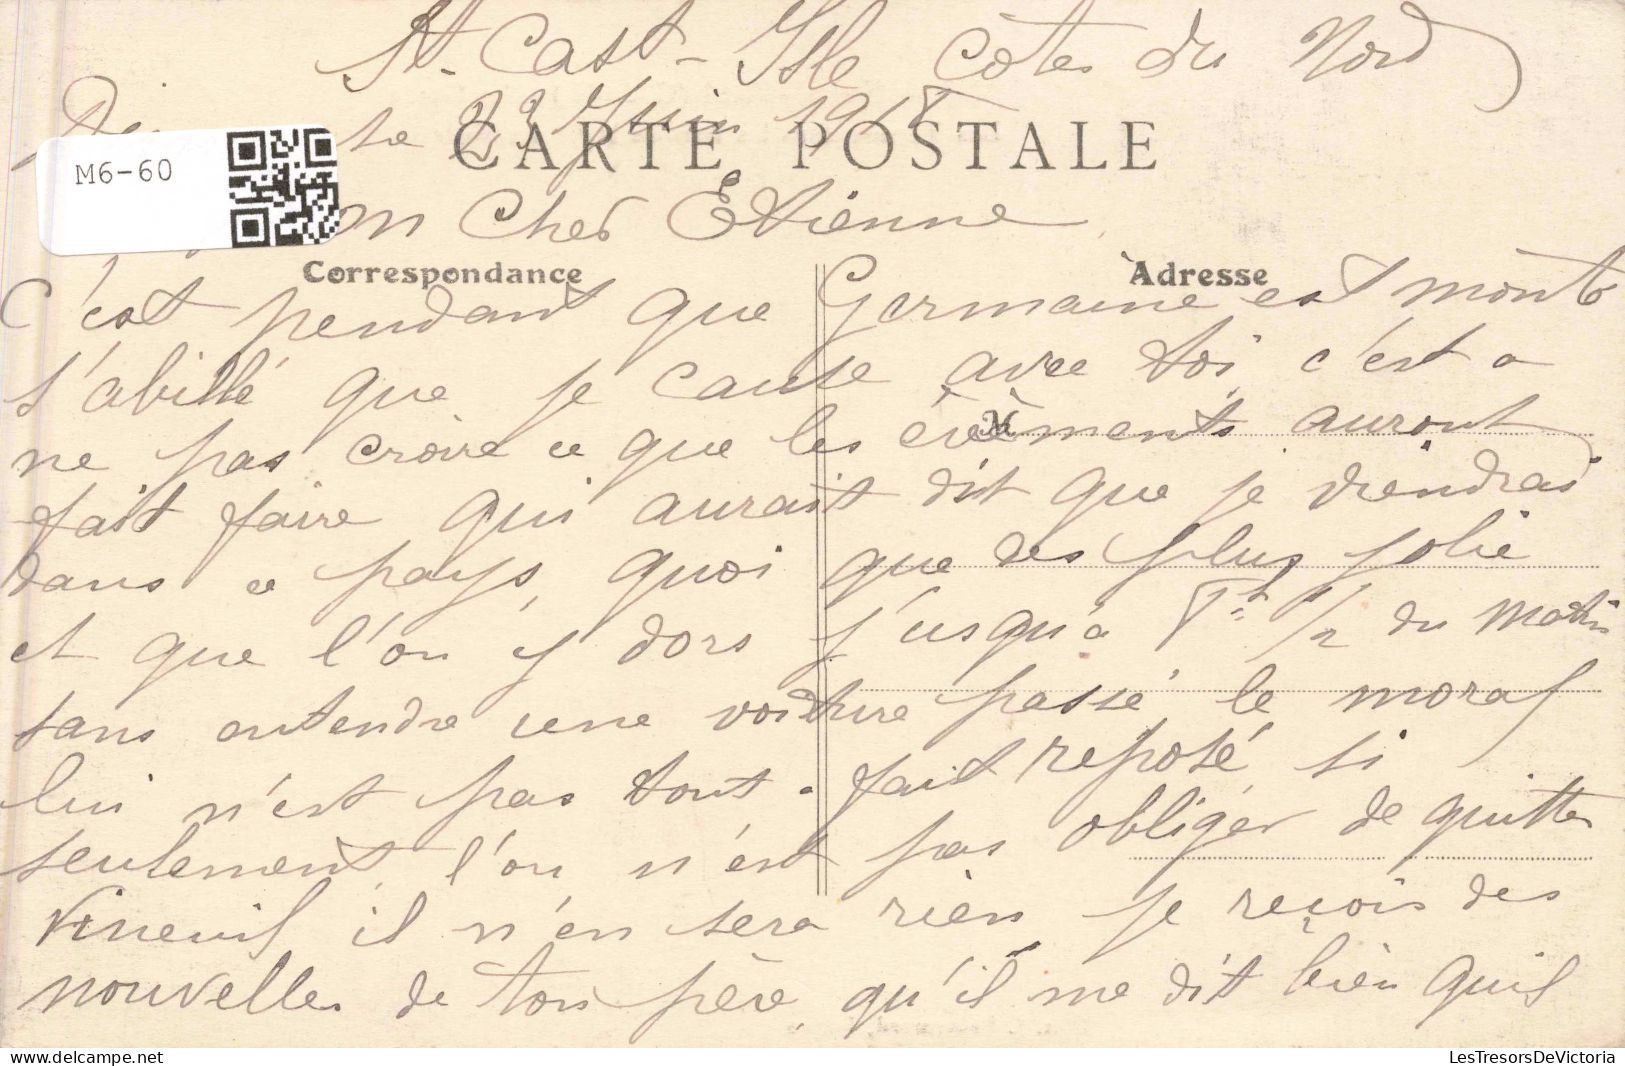 St-Cast-Isle Côtes du Nord
le 23 Juin 1918
CARTE POSTALE
M6-60
on Cher Etienne
Correspondance
Adresse
C'est pendant que Germaine est monté
s'abillé que je cause avec toi, c'est a
M
ne pas croire ce que les évèments auront
fait faire qui aurait dit que je viendrai
dans ce pays, quoi que des plus jolie
et que l'on y dors j'usqu'a 8h 1/2 du matin
sans entendre une voiture passé, le moral
lui n'est pas tout a fait reposé, si
seulement l'on n'est pas obliger de quitter
Vineuil il n'en sera rien je reçois des
nouvelles de ton père, qu'il me dit bien quil
LesTresorsDeVictoria